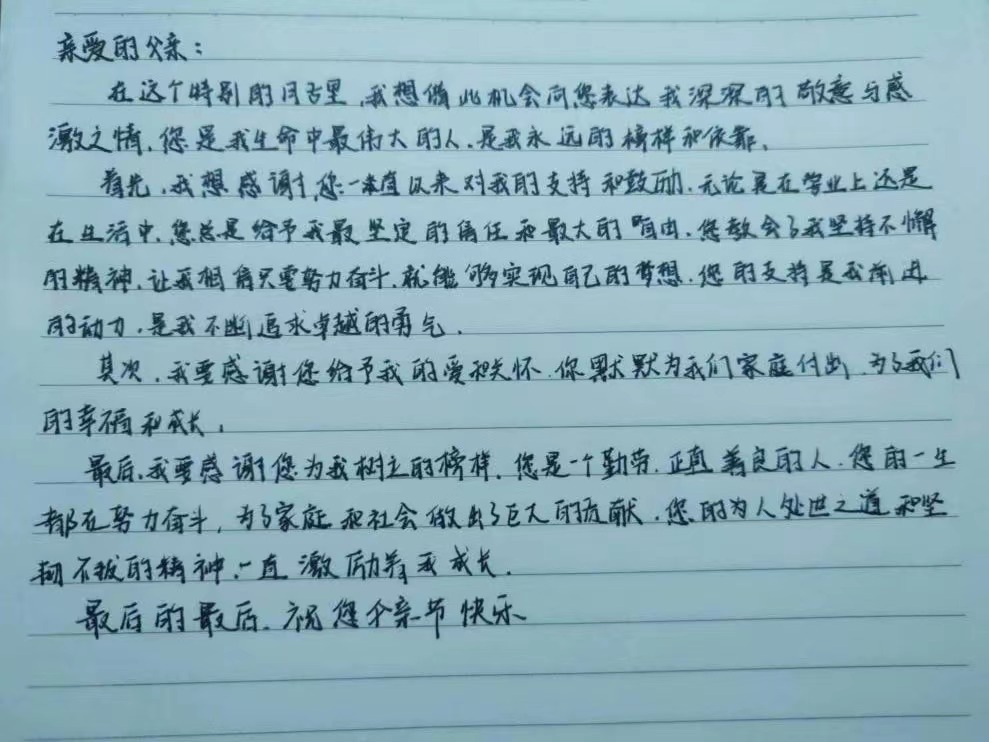 亲爱的父亲：
在这个特别的日子里，我想借此机会向您表达我深深的敬意与感
激之情，您是我生命中最伟大的人，是我永远的榜样和依靠。
首先，我想感谢您一直以来对我的支持和鼓励，无论是在学业上还是
在生活中，您总是给予我最坚定的信任和最大的自由，您教会了我坚持不懈
的精神，让我相信只要努力奋斗，就能够实现自己的梦想，您的支持是我前进
的动力，是我不断追求卓越的勇气。
其次，我要感谢您给予我的爱和关怀，你默默为我们家庭付出，为了我们
的幸福和成长。
最后，我要感谢您为我树立的榜样，您是一个勤劳，正直善良的人，您的一生
都在努力奋斗，为了家庭和社会做出了巨大的贡献，您的为人处世之道和坚
韧不拔的精神，一直激励着我成长。
最后的最后，祝您父亲节快乐